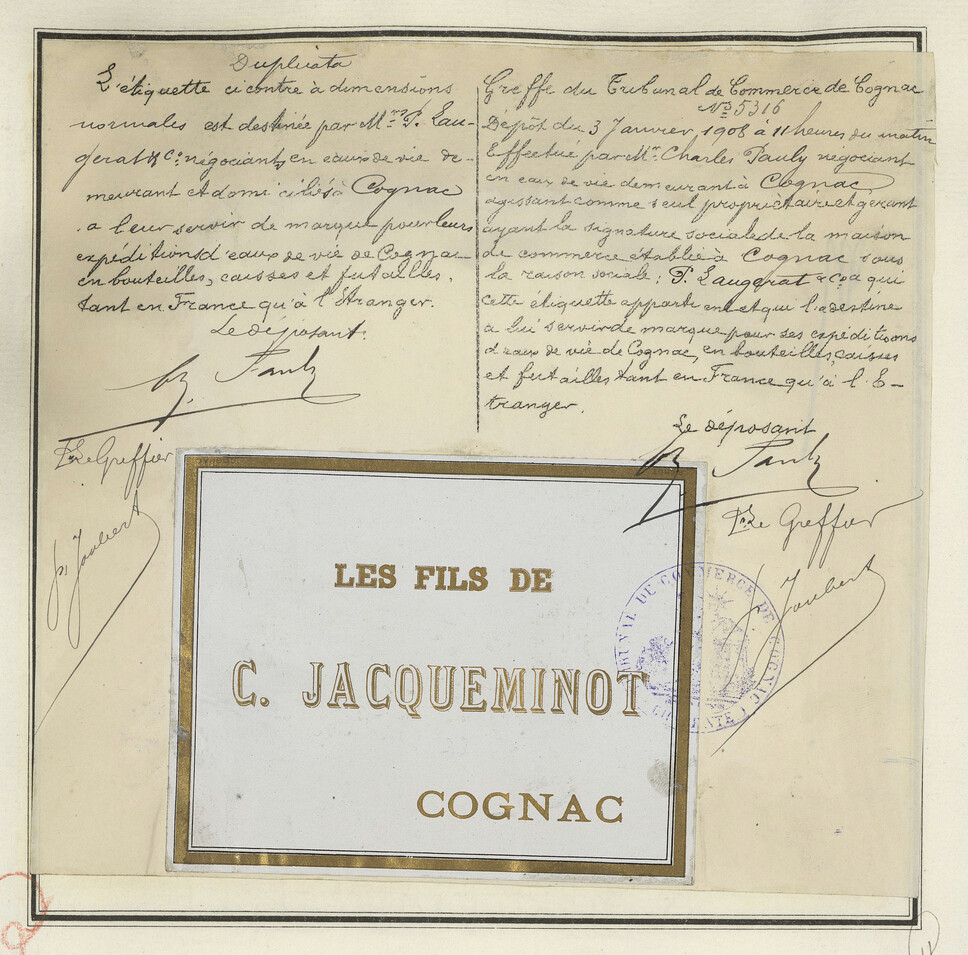 Duplicata
L'étiquette ci contre à dimensions
normales est destinée par Mrs P. Lau-
gerat & Co négociants en eaux de vie de-
meurant et domiciliés à Cognac
a leur servir de marque pour leurs
expéditions d'eaux de vie de Cognac
en bouteilles, caisses et futailles,
tant en France qu'à l'étranger.
Le déposant:
Ch. Pauly
Pr Le Greffier
Joubert
Greffe du Tribunal de Commerce de Cognac
No 5316
Dépôt du 3 Janvier, 1908 à 11 heures du matin
Effectué par Mr Charles Pauly négociant
en eaux de vie demeurant à Cognac,
agissant comme seul propriétaire et gérant
ayant la signature sociale de la maison
de commerce établie à Cognac sous
la raison sociale: P. Laugerat & Co a qui
cette étiquette appartient et qui l'a destine
a lui servir de marque pour ses expéditions
d'eaux de vie de Cognac, en bouteilles, caisses
et futailles tant en France qu'à l'E-
tranger.
Le déposant
Ch. Pauly
Pr Le Greffier
Joubert
LES FILS DE
C. JACQUEMINOT
COGNAC
TRIBUNAL DE COMMERCE DE COGNAC
CHARENTE